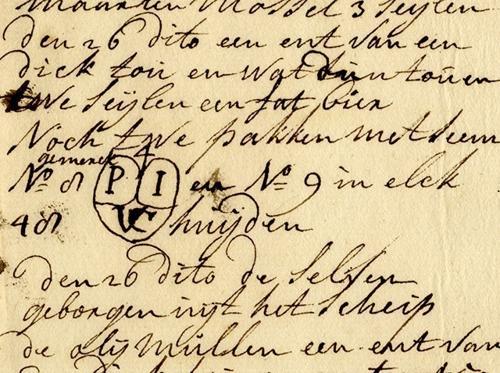 Maarten Mossel 3 Seylen
den 26 dito een ent van een
dick tou en wat dun tou en
twe Seijlen een fat bier
Noch twe pakken met seem
gemerck
No 8 P I VC en No 9 in elck
48 huijden
den 26 dito de Selfen
geborgen uijt het Scheip
de olijmullen een ent van